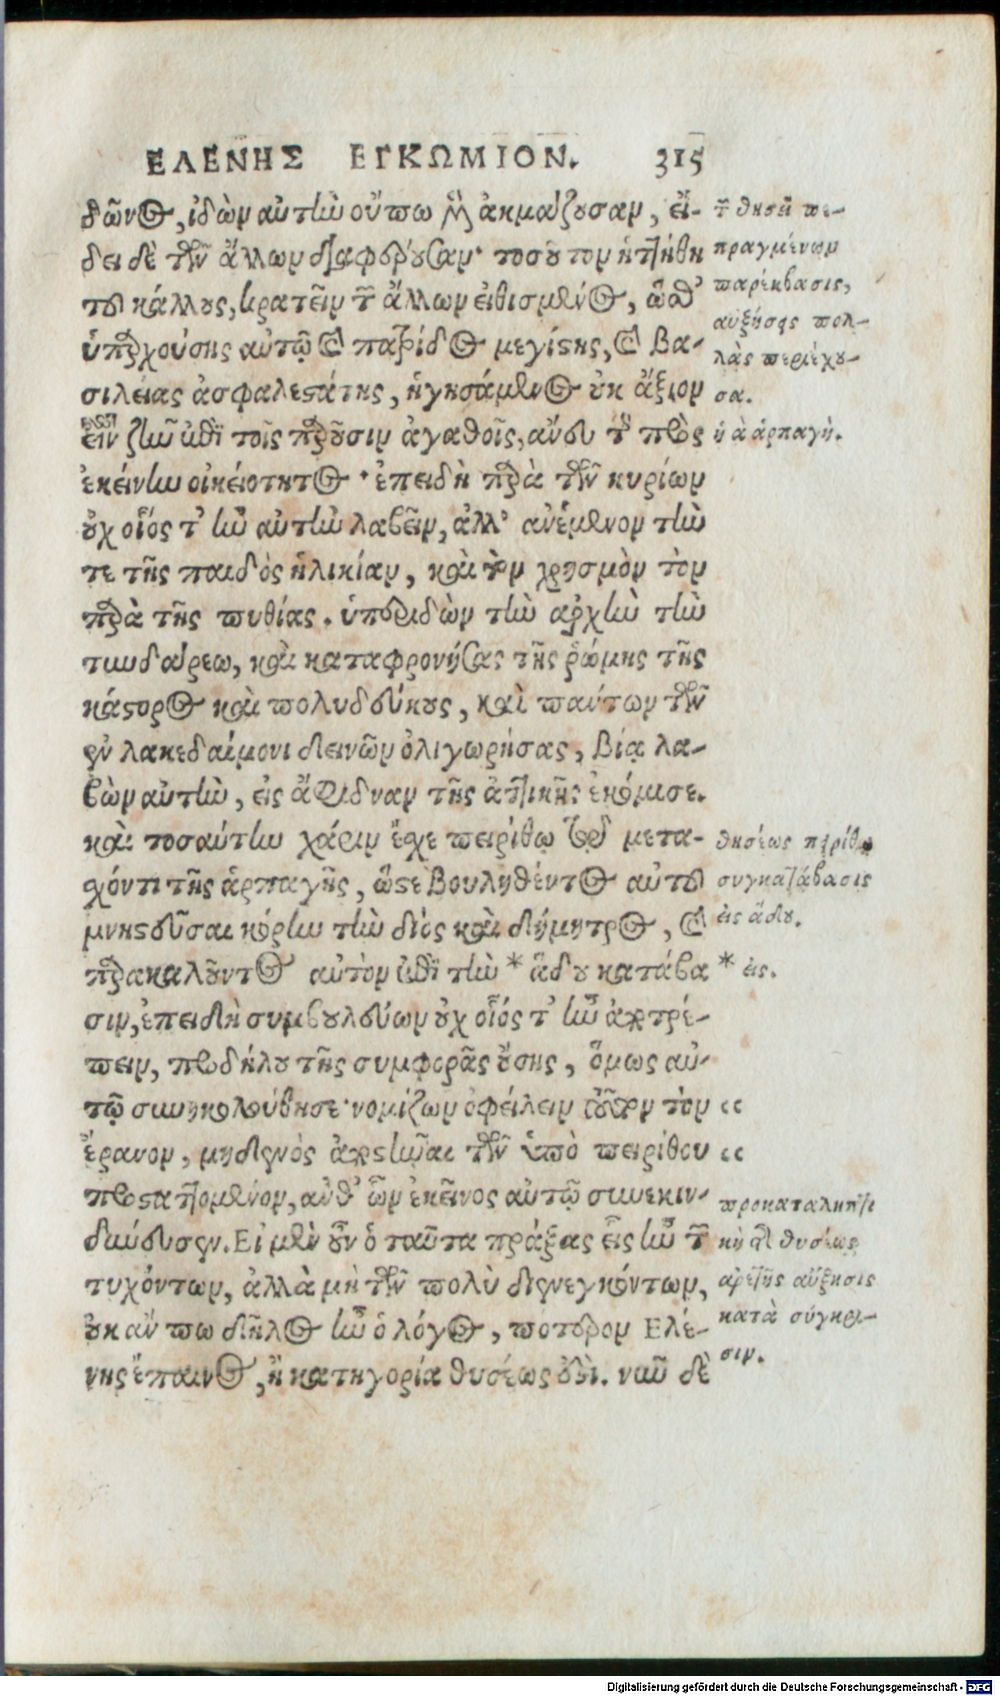 ΕΛΕΝΗΣ ΕΓΚΩΜΙΟΝ. 315
δῶνος, ἰδὼν αὐτὴν οὔπω μὲν ἀκμάζουσαν, ἤ-
δη δὲ τῶν ἄλλων διαφέρουσαν· τοσοῦτον ἡττήθη
τοῦ κάλλους, κρατεῖν τῶν ἄλλων εἰθισμένος, ὥσθ'
ὑπαρχούσης αὐτῷ καὶ πατρίδος μεγίστης, καὶ βα-
σιλείας ἀσφαλεστάτης, ἡγησάμενος οὐκ ἄξιον
εἶναι ζῆν ἐπὶ τοῖς παροῦσιν ἀγαθοῖς, ἄνευ τῆς πρὸς
ἐκείνην οἰκειότητος· ἐπειδὴ παρὰ τῶν κυρίων
οὐχ οἷός τ' ἦν αὐτὴν λαβεῖν, ἀλλ' ἀνέμενον τήν
τε τῆς παιδὸς ἡλικίαν, καὶ τὸν χρησμὸν τὸν
παρὰ τῆς πυθίας. ὑπεριδὼν τὴν ἀρχὴν τὴν
τυνδάρεω, καὶ καταφρονήσας τῆς ῥώμης τῆς
κάστορος καὶ πολυδεύκους, καὶ πάντων τῶν
ἐν λακεδαίμονι δεινῶν ὀλιγωρήσας, βίᾳ λα-
βὼν αὐτὴν, εἰς ἄφιδναν τῆς ἀττικῆς ἐκόμισε.
καὶ τοσαύτην χάριν ἔσχε πειρίθῳ τῷ μετα-
σχόντι τῆς ἁρπαγῆς, ὥστε βουληθέντος αὐτοῦ
μνηστεῦσαι κόρην τὴν διὸς καὶ δήμητρος, καὶ
παρακαλοῦντος αὐτὸν ἐπὶ τὴν * ᾅδου κατάβα
σιν, ἐπειδὴ συμβουλεύων οὐχ οἷός τ' ἦν ἀποτρέ-
πειν, προδήλου τῆς συμφορᾶς οὔσης, ὅμως αὐ-
τῷ συνηκολούθησε· νομίζων ὀφείλειν τοῦτον τὸν ‹‹
ἔρανον, μηδενὸς ἀποστῆναι τῶν ὑπὸ πειρίθου ‹‹
προσταττομένων, ἀνθ' ὧν ἐκεῖνος αὐτῷ συνεκιν-
δύνευσεν. Εἰ μὲν οὖν ὁ ταῦτα πράξας εἷς ἦν τῶν
τυχόντων, ἀλλὰ μὴ τῶν πολὺ διενεγκόντων,
οὐκ ἄν πω δῆλος ἦν ὁ λόγος, πότερον Ελέ-
νης ἔπαινος, ἢ κατηγορία θησέως ἐστι. νῦν δὲ
τῶν θησεῖ πε-
πραγμένων
παρέκβασις,
αὐξήσεις πολ-
λὰς περιέχου-
σα.
ἡ ἁρπαγή.
θησέως πειρίθῳ
συγκατάβασις
εἰς ᾅδου.
* εἰς.
προκαταληπτι
κὴ τῆς θησέως
ἀρετῆς αὔξησις
κατὰ σύγκρι-
σιν.
Digitalisierung gefördert durch die Deutsche Forschungsgemeinschaft - DFG